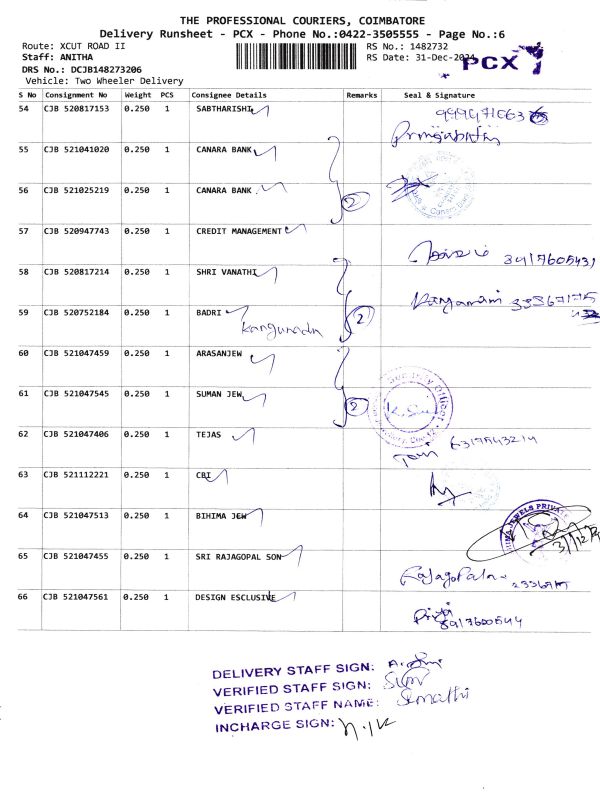 THE PROFESSIONAL COURIERS, COIMBATORE
Delivery Runsheet - PCX - Phone No.:0422-3505555 - Page No.:6
Route: XCUT ROAD II RS No.: 1482732
Staff: ANITHA RS Date: 31-Dec-2024
PCX
DRS No.: DCJB148273206
Vehicle: Two Wheeler Delivery
S No Consignment No Weight PCS Consignee Details Remarks Seal & Signature
54 CJB 520817153 0.250 1 SABTHARISHI
55 CJB 521041020 0.250 1 CANARA BANK
56 CJB 521025219 0.250 1 CANARA BANK 2
57 CJB 520947743 0.250 1 CREDIT MANAGEMENT
58 CJB 520817214 0.250 1 SHRI VANATHI
59 CJB 520752184 0.250 1 BADRI 2
60 CJB 521047459 0.250 1 ARASANJEW
61 CJB 521047545 0.250 1 SUMAN JEW 2
62 CJB 521047406 0.250 1 TEJAS
63 CJB 521112221 0.250 1 CBI
64 CJB 521047513 0.250 1 BIHIMA JEW
65 CJB 521047455 0.250 1 SRI RAJAGOPAL SON Rajagopalan
66 CJB 521047561 0.250 1 DESIGN ESCLUSIVE
DELIVERY STAFF SIGN:
VERIFIED STAFF SIGN:
VERIFIED STAFF NAME: Sumathi
INCHARGE SIGN: